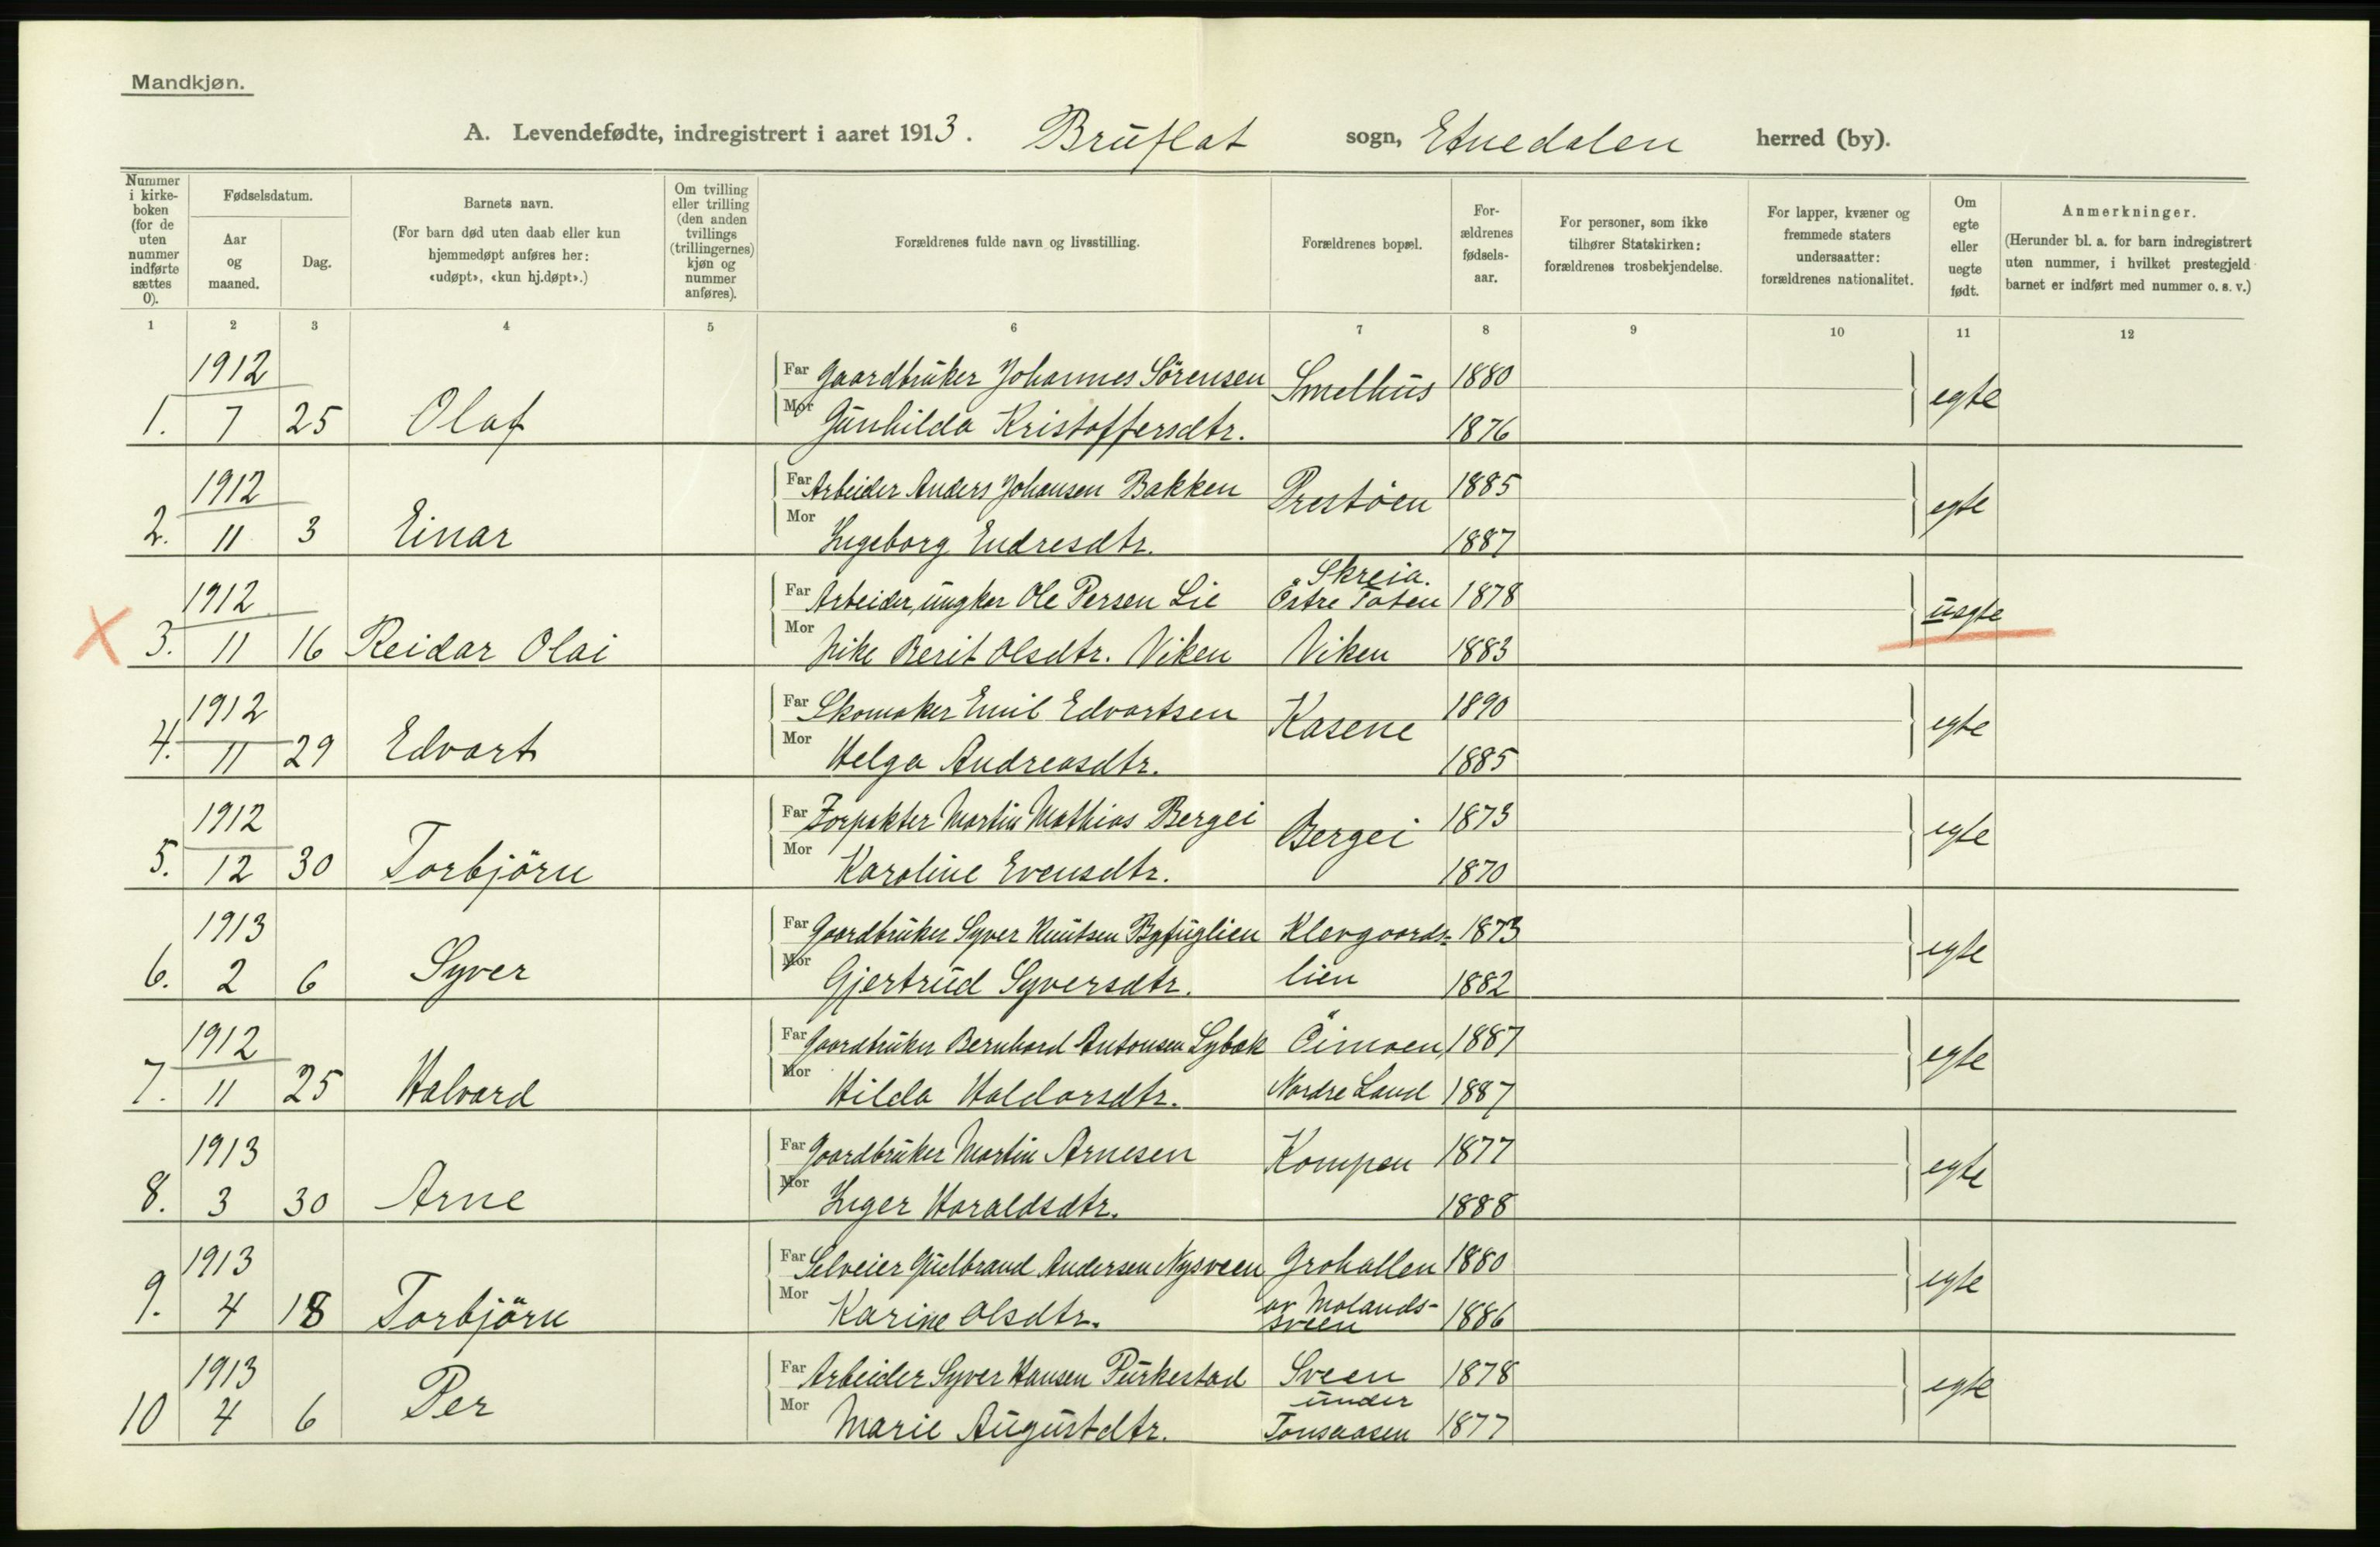 Mandkjøn.
A. Levendefødte, indregistrert i aaret 1913. Bruflat sogn, Etnedalen herred (by).
Nummer i kirke-boken (for de uten nummer indførte sættes 0).
Fødselsdatum.
Aar og maaned.
Dag.
Barnets navn.
(For barn død uten daab eller kun hjemmedøpt anføres her: «udøpt», «kun hj.døpt».)
Om tvilling eller trilling (den anden tvillings (trillingernes) kjøn og nummer anføres).
Forældrenes fulde navn og livsstilling.
Forældrenes bopæl.
For-ældrenes fødsels-aar.
For personer, som ikke tilhører Statskirken: forældrenes trosbekjendelse.
For lapper, kvæner og fremmede staters undersaatter: forældrenes nationalitet.
Om egte eller uegte født.
Anmerkninger.
(Herunder bl. a. for barn indregistrert uten nummer, i hvilket prestegjeld barnet er indført med nummer o. s. v.)
1 2 3 4 5 6 7 8 9 10 11 12
1912 Far Gaardbruker Johannes Sörensen Smelhus 1880 egte
1. 7 25 Olaf Mor Gunhilda Kristoffersdtr. 1876
1912 Far Arbeider Anders Johansen Bakken Prestöen 1885 egte
2. 11 3 Einar Mor Ingeborg Endresdtr. 1887
Skreia.
1912 Far Arbeider, ungkar Ole Persen Lie Östre Toten 1878 uegte
X 3. 11 16 Reidar Olai Mor Pike Berit Olsdtr. Viken Viken 1883
1912 Far Skomaker Emil Edvartsen Kasene 1890 egte
4. 11 29 Edvart Mor Helga Andreasdtr. 1885
1912 Far Forpakter Martin Mathias Bergei Bergei 1873 egte
5. 12 30 Torbjörn Mor Karoline Evensdtr. 1870
1913 Far Gaardbruker Syver Knutsen Byfuglien Klevgaards- 1873 egte
6. 2 6 Syver Mor Gjertrud Syversdtr. lien 1882
1912 Far Gaardbruker Bernhard Antonsen Lybæk Öimoen, 1887 egte
7. 11 25 Halvard Mor Hilda Haldorsdtr. Nordre Land 1887
1913 Far Gaardbruker Martin Arnesen Kompen 1877 egte
8. 3 30 Arne Mor Inger Haraldsdtr. 1888
1913 Far Selveier Gudbrand Andersen Nysveen Grohallen 1880 egte
9. 4 18 Torbjörn Mor Karine Olsdtr. av Molands-sveen 1886
1913 Far Arbeider Syver Hansen Purkestad Sveen 1878 egte
under
10 4 6 Per Mor Marie Augustdtr. Tonsaasen 1877